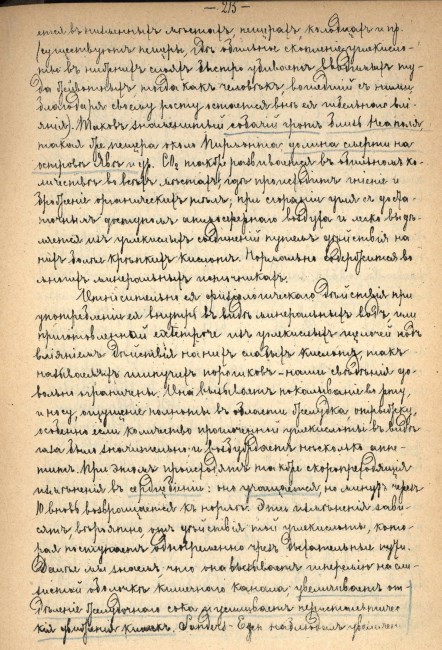 — 213 —
ется въ низменныхъ мѣстахъ, пещерахъ, колодцахъ и пр.
(существуютъ пещеры, гдѣ обильное скопленіе углекисло-
ты въ нижнихъ слояхъ быстро убиваетъ введенныхъ ту-
да животныхъ, тогда какъ человѣкъ, вошедшій съ ними,
благодаря своему росту остается внѣ ея гибельнаго влі-
янія). Таковъ знаменитый собачій гротъ близь Неаполя,
такая же пещера около Пирмонта, долина смерти на
островѣ Явѣ и др. CO₂ также развивается въ обильномъ ко-
личествѣ во всѣхъ мѣстахъ, гдѣ происходитъ гніеніе и
броженіе органическихъ тѣлъ; при сгораніи угля съ доста-
точнымъ доступомъ атмосфернаго воздуха и легко выдѣ-
ляется изъ углекислыхъ соединеній путемъ дѣйствія на
нихъ болѣе крѣпкихъ кислотъ. Нормально содержится во
многихъ минеральныхъ источникахъ.
Относительно ея физіологическаго дѣйствія при
употребленіи ея внутрь въ видѣ минеральныхъ водъ, или
приготовленной ex tempore изъ углекислыхъ щелочей подъ
вліяніемъ дѣйствія на нихъ слабыхъ кислотъ, такъ
называемыхъ шипучихъ порошковъ – наши свѣдѣнія до-
вольно ограничены. Она вызываетъ покалываніе во рту
и носу, ощущеніе полноты въ области желудка, отрыжку,
особенно если количество проглоченной углекислоты въ видѣ
газа было значительно и возбуждаетъ нѣсколько аппе-
титъ. При этомъ происходятъ также скоропреходящія
измѣненія въ сердцебіеніи: оно учащается, но минутъ чрезъ
10 вновь возвращается къ нормѣ. Эти измѣненія зави-
сятъ вѣроятно отъ дѣйствія той углекислоты, кото-
рая поступаетъ одновременно чрезъ дыхательные пути.
Далѣе мы знаемъ, что она вызываетъ гиперемію на сли-
зистой оболочкѣ кишечнаго канала, увеличиваетъ от-
дѣленіе желудочнаго сока и усиливаетъ перистальтичес-
кія движенія кишекъ. Sanders-Ezn наблюдалъ увеличен-